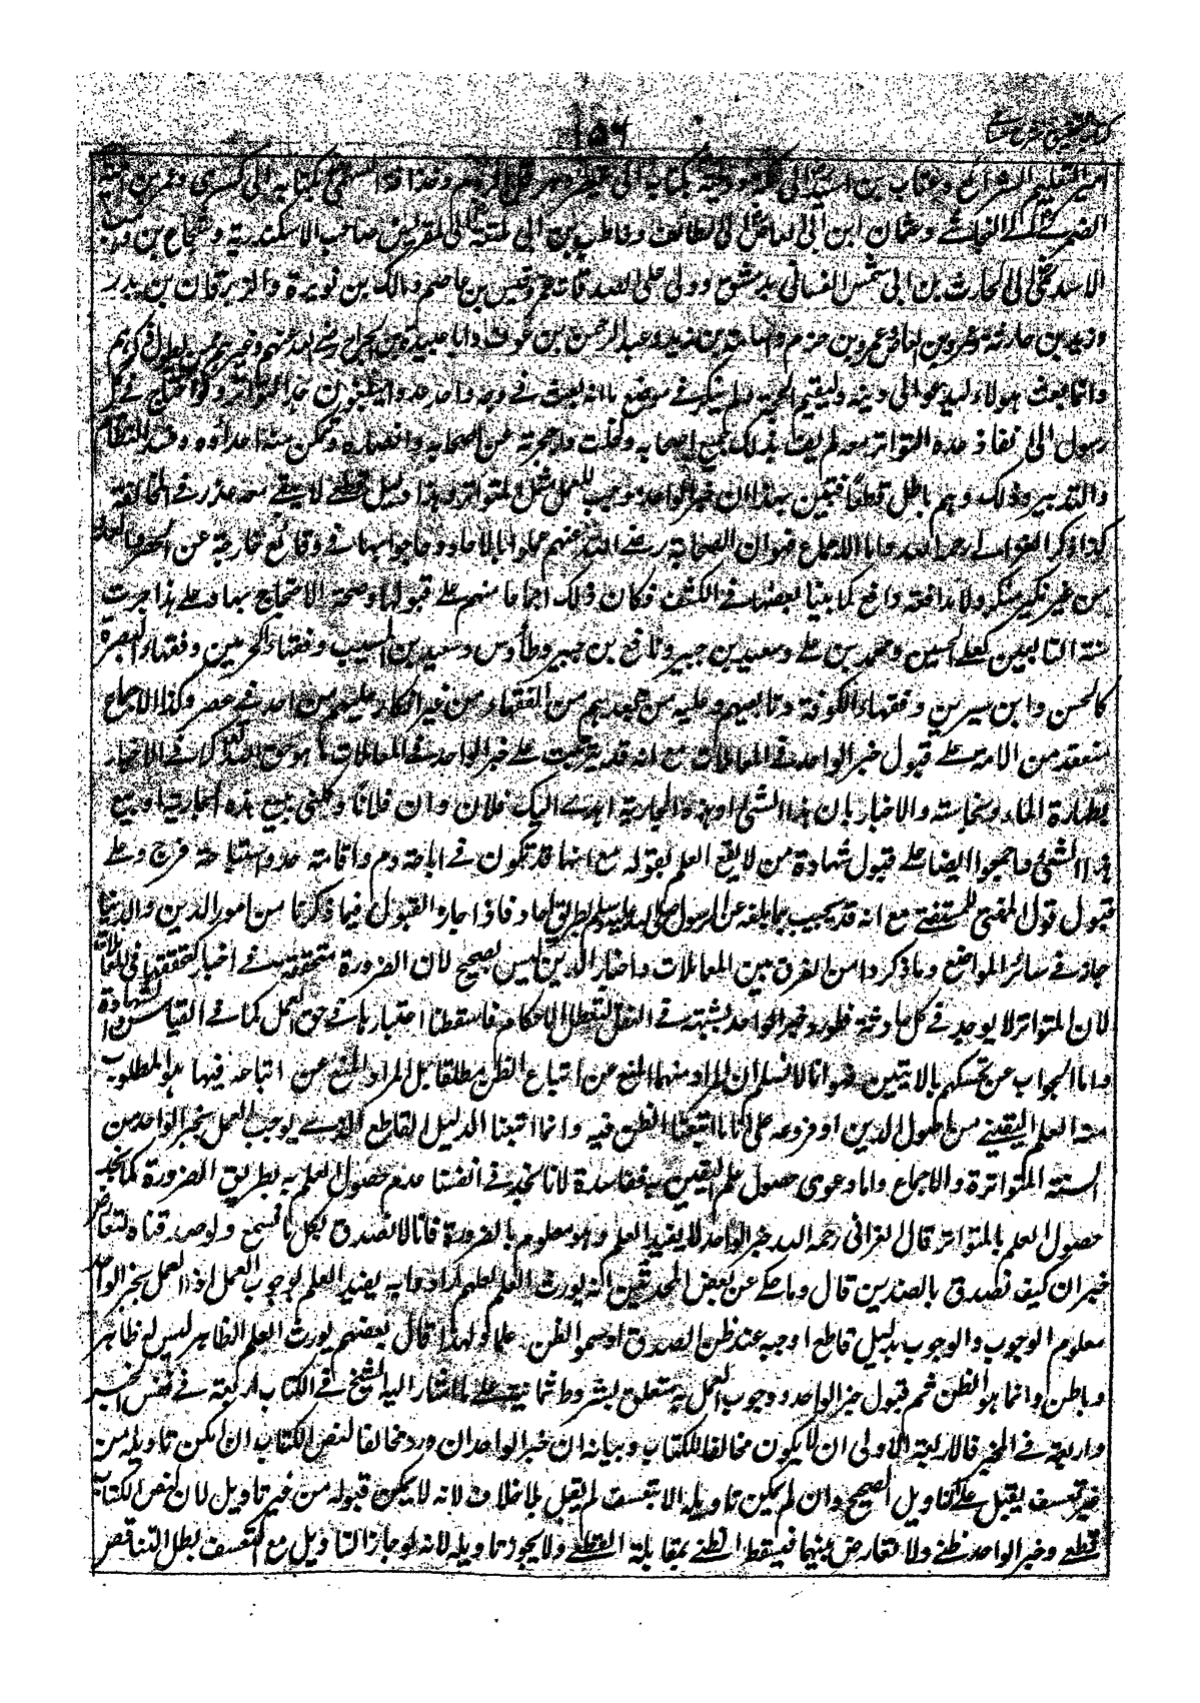 ١٥٦
وعتاب بن اسيد الى ودحية بكتابه الى وحذافة السهمي بكتابه الى كسرى وعمرو بن امية
الضمري الى النجاشي وعثمان ابن ابي العاص الى الطائف وحاطب بن ابي بلتعة الى المقوقس صاحب الاسكندرية وشجاع بن وهب
الاسدي الى الحارث بن ابي شمر الغساني بدمشق وولى على الصدقات عمر وقيس بن عاصم ومالك بن نويرة والزبرقان بن بدر
وزيد بن حارثة وعمرو بن العاص وعمرو بن حزم واسامة بن زيد وعبد الرحمن بن عوف وابا عبيدة بن الجراح رضي الله عنهم وغيرهم ممن يطول ذكرهم
وانما بعث هولاء ليدعوا الى دينه وليقيم الحجة ولم يذكر في موضع ما انه بعث في وجه واحد عددا يبلغون حد التواتر ولو احتاج في كل
رسول الى نفاذ عدد التواتر معه لم يف بذلك جميع اصحابه ولخلت دار هجرته عن اصحابه وانصاره وتمكن منه اعداؤه وفسد النظام
والتدبير وذلك وهم باطل قطعا فتبين بهذا ان خبر الواحد موجب للعمل مثل المتواتر وهذا دليل قطعي لا يبقى معه عذر في المخالفة
كذا ذكر الغزالي رحمه الله واما الاجماع فهو ان الصحابة رضي الله عنهم عملوا بالاحاد وحاجوا بها في وقائع خارجة عن الحصر والعد
من غير نكير منكر ولا مدافعة دافع كما بينا بعضها في الكشف فكان ذلك اجماعا منهم على قبولها وصحة الاحتجاج بها وعلى هذا جرت
سنة التابعين كعلي بن الحسين ومحمد بن علي وسعيد بن جبير ونافع بن جبير وطاؤس وسعيد بن المسيب وفقهاء الحرمين وفقهاء البصرة
كالحسن وابن سيرين وفقهاء الكوفة وتابعيهم وعليه من بعدهم من الفقهاء من غير انكار عليهم من احد في عصر وكذا الاجماع
منعقد من الامة على قبول خبر الواحد في المعاملات مع انه قد يترتب على خبر الواحد في المعاملات ما هو حق الله كما في الاخبار
بطهارة الماء ونجاسته والاخبار بان هذا الشئ او هذه الجارية اهدى اليك فلان وان فلانا وكلني ببيع هذه الجارية او بيع
هذا الشئ واجمعوا ايضا على قبول شهادة من لا يقع العلم بقوله مع انها قد تكون في اباحة دم واقامة حد واستباحة فرج وعلى
قبول قول المفتي للمستفتي مع انه قد يجيب بما بلغه عن الرسول صلى الله عليه وسلم بطريق الاحاد فاذا جاز القبول فيما ذكرنا من امور الدين والدنيا
جاز في سائر المواضع وما ذكروا من الفرق بين المعاملات واخبار الدين ليس بصحيح لان الضرورة متحققة في اخبار كتحققها في المعاملات
لان المتواتر لا يوجد في كل حادثة فلو رد خبر الواحد لشبهة في النقل لتعطل الاحكام فاسقطنا اعتبارها في حق العمل كما في القياس والشهادة
واما الجواب عن تمسكهم بالايتين فهو انا لا نسلم ان المراد منهما المنع عن اتباع الظن مطلقا بل المراد المنع عن اتباعه فيما هو المطلوب
منه العلم اليقيني من اصول الدين او فروعه على انا ما اتبعنا الظن فيه وانما اتبعنا الدليل القاطع الذي يوجب العمل بخبر الواحد من
السنة المتواترة والاجماع واما دعوى حصول علم اليقين به ففاسدة لانا نجد في انفسنا عدم حصول العلم به بطريق الضرورة كما نجد
حصول العلم بالمتواتر قال الغزالي رحمه الله خبر الواحد لا يفيد العلم وهو معلوم بالضرورة فانا لا نصدق بكل ما نسمع ولو صدقناه لتعارض
خبران كيف نصدق بالضدين قال وما حكي عن بعض المحدثين انه يورث العلم لعلهم ارادوا به يفيد العلم لوجوب العمل اذ العمل بخبر الواحد
معلوم الوجوب والوجوب بدليل قاطع اوجبه عند ظن الصدق او سموا الظن علما ولهذا قال بعضهم يورث العلم الظاهر ليس له ظاهر
وباطن وانما هو الظن ثم قبول خبر الواحد ووجوب العمل به متعلق بشروط ثمانية على ما اشار اليه الشيخ في الكتاب اربعة في نفس الخبر
واربعة في المخبر فالاربعة الاولى ان لا يكون مخالفا للكتاب وبيانه ان خبر الواحد ان ورد مخالفا لنص الكتاب ان امكن تاويله من
غير تعسف يقبل على التاويل الصحيح وان لم يمكن تاويله الا بتعسف لم يقبل بلا خلاف لانه لا يمكن قبوله من غير تاويل لان نص الكتاب
قطعي وخبر الواحد ظني ولا تعارض بينهما فيسقط الظني بمقابلة القطعي ولا يجوز تاويله لانه لو جاز التاويل مع التعسف بطل التناقض